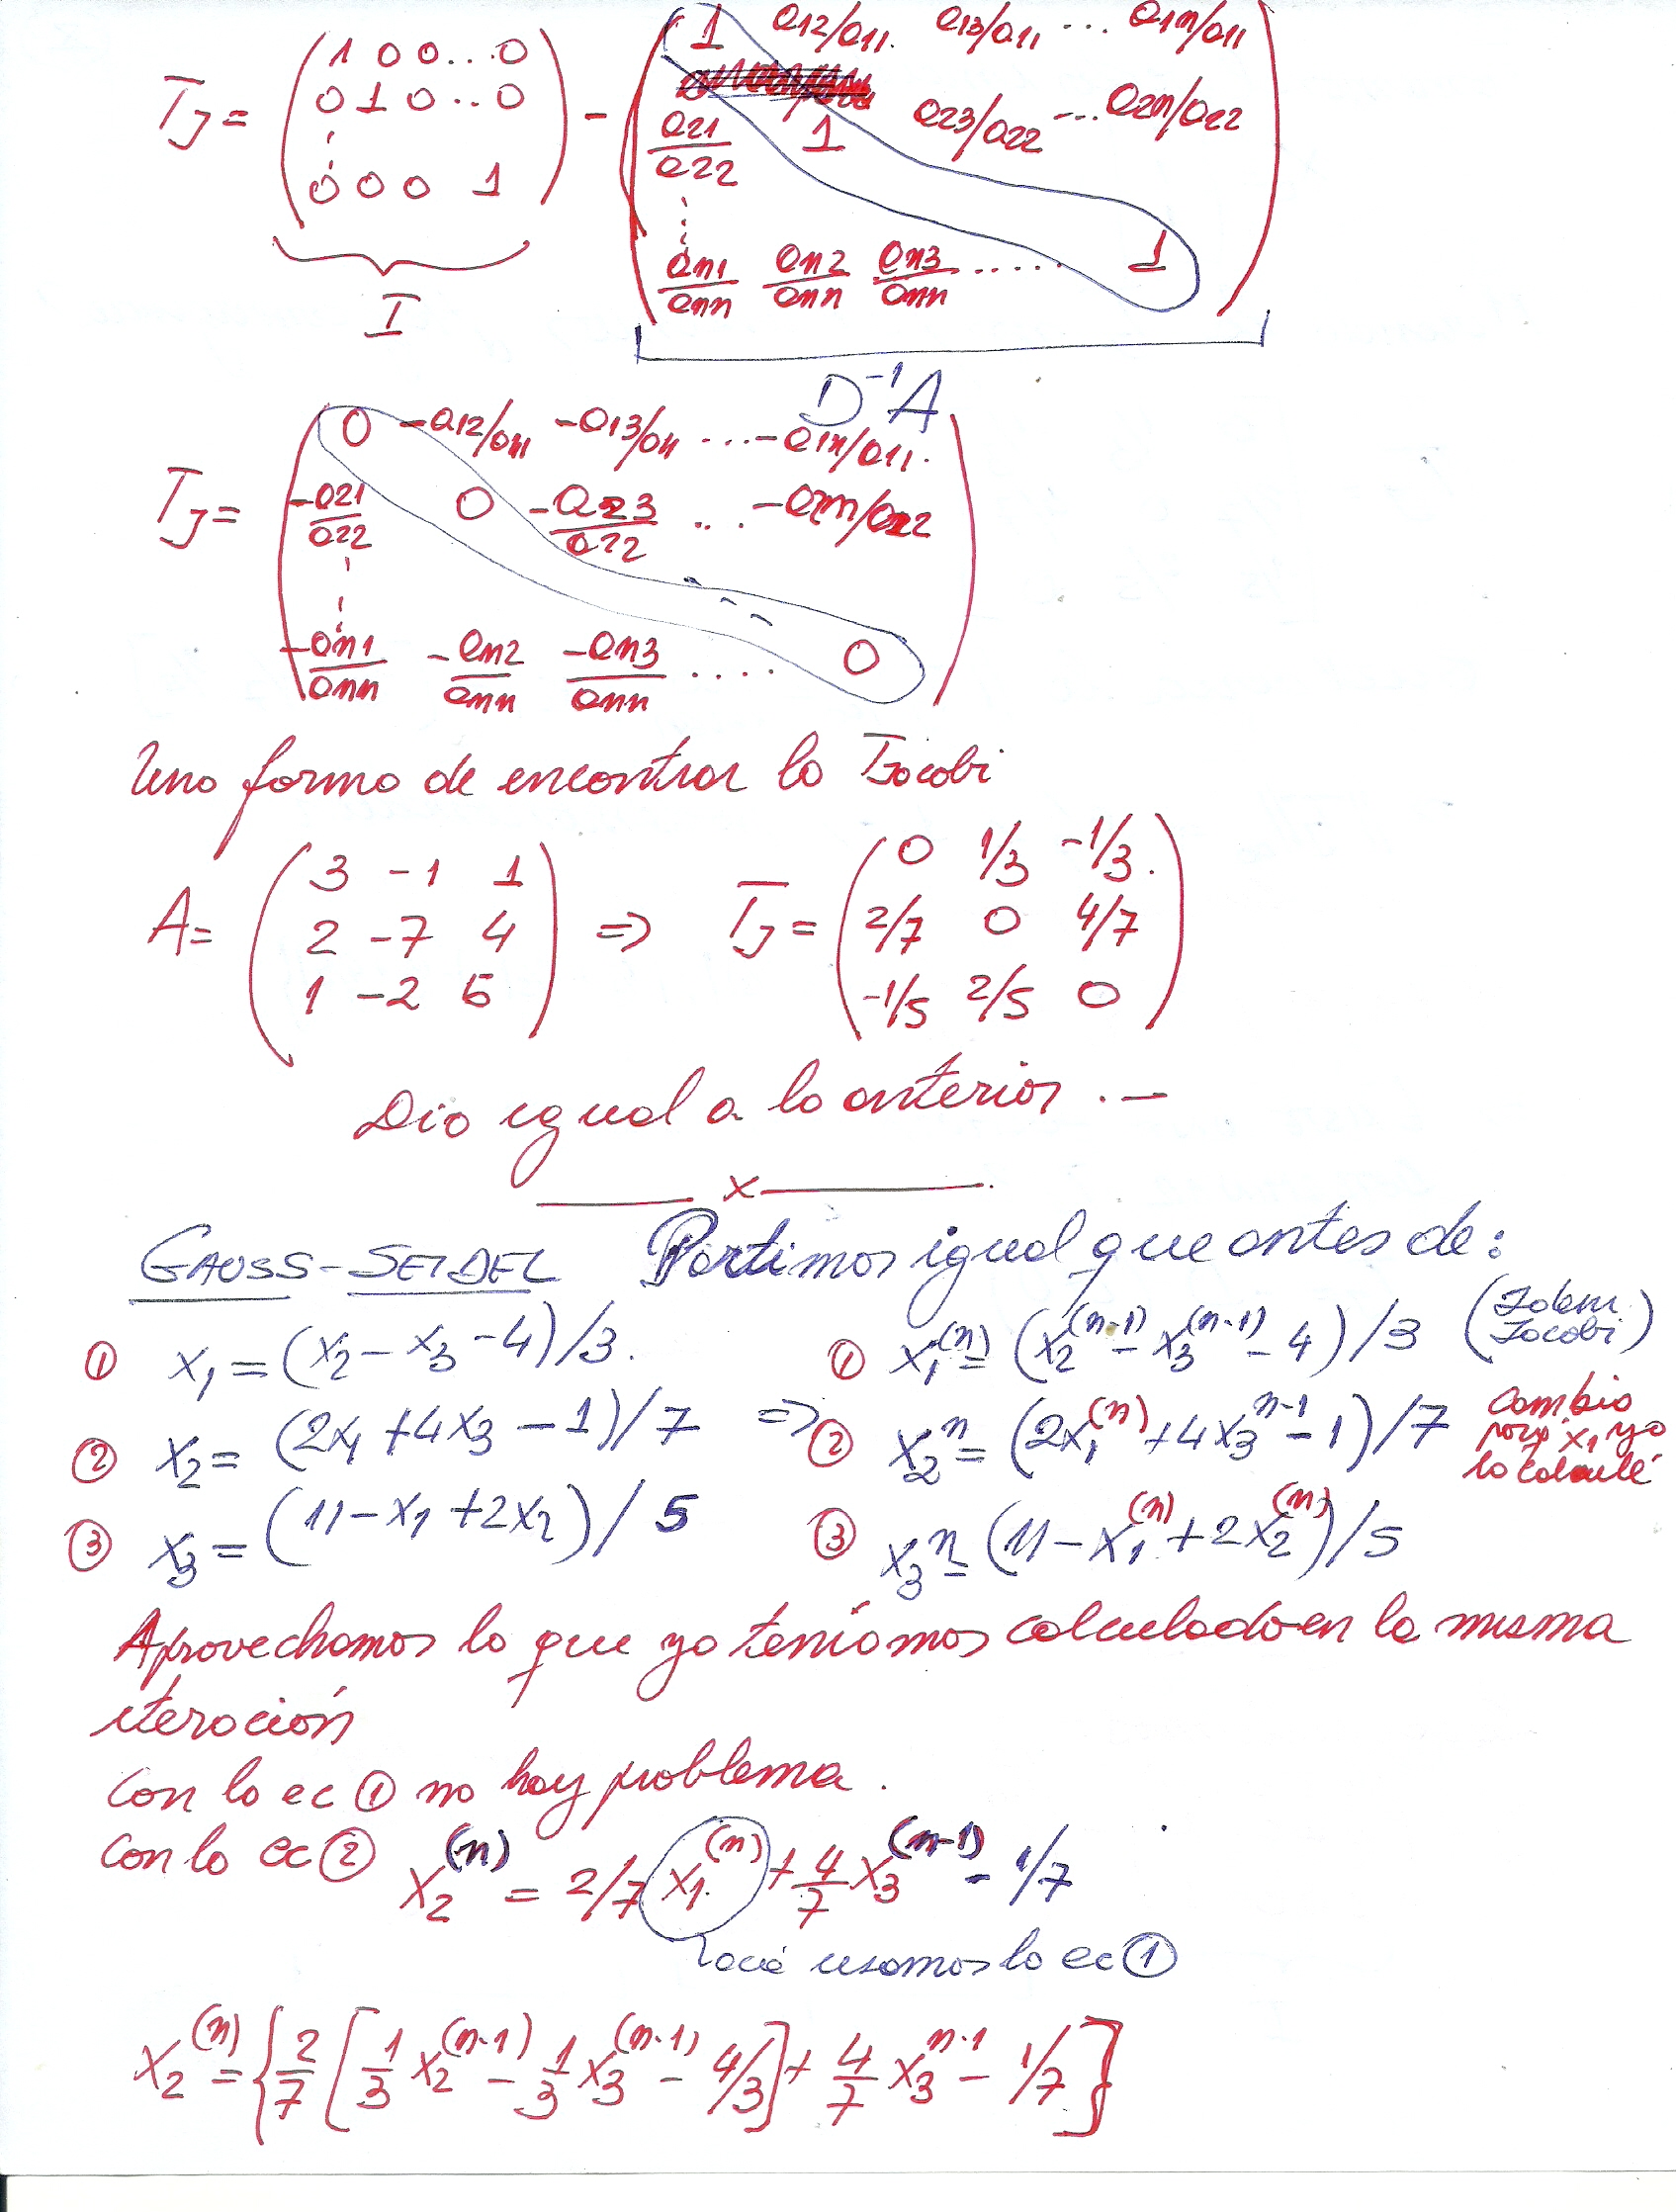 TJ = ( 1 0 0 ... 0 ) - ( 1 a12/a11 a13/a11 ... a1n/a11 )
( 0 1 0 ... 0 ) ( a21/a22 1 a23/a22 ... a2n/a22 )
( 0 0 0 1 ) ( an1/ann an2/ann an3/ann ..... 1 )
I
D⁻¹A
TJ = ( 0 -a12/a11 -a13/a11 ... -a1n/a11 )
( -a21/a22 0 -a23/a22 ... -a2n/a22 )
( -an1/ann -an2/ann -an3/ann .... 0 )
Una forma de encontrar la TJacobi
A = ( 3 -1 1 ) => TJ = ( 0 1/3 -1/3 )
( 2 -7 4 ) ( 2/7 0 4/7 )
( 1 -2 5 ) ( -1/5 2/5 0 )
Dio igual a lo anterior .-
x
GAUSS-SEIDEL Partimos igual que antes de:
① x₁ = (x₂ - x₃ - 4)/3. ① x₁⁽ⁿ⁾ = (x₂⁽ⁿ⁻¹⁾ - x₃⁽ⁿ⁻¹⁾ - 4)/3 (Idem Jacobi)
② x₂ = (2x₁ + 4x₃ - 1)/7 => ② x₂ⁿ = (2x₁⁽ⁿ⁾ + 4x₃ⁿ⁻¹ - 1)/7 cambio porq x₁ ya lo calculé
③ x₃ = (11 - x₁ + 2x₂)/5 ③ x₃ⁿ = (11 - x₁⁽ⁿ⁾ + 2x₂⁽ⁿ⁾)/5
Aprovechamos lo que ya teníamos calculado en la misma
iteración
Con la ec ① no hay problema.
Con la ec ② x₂⁽ⁿ⁾ = 2/7 x₁⁽ⁿ⁾ + 4/7 x₃⁽ⁿ⁻¹⁾ - 1/7
acá usamos la ec ①
x₂⁽ⁿ⁾ = { 2/7 [ 1/3 x₂⁽ⁿ⁻¹⁾ - 1/3 x₃⁽ⁿ⁻¹⁾ - 4/3 ] + 4/7 x₃ⁿ⁻¹ - 1/7 }